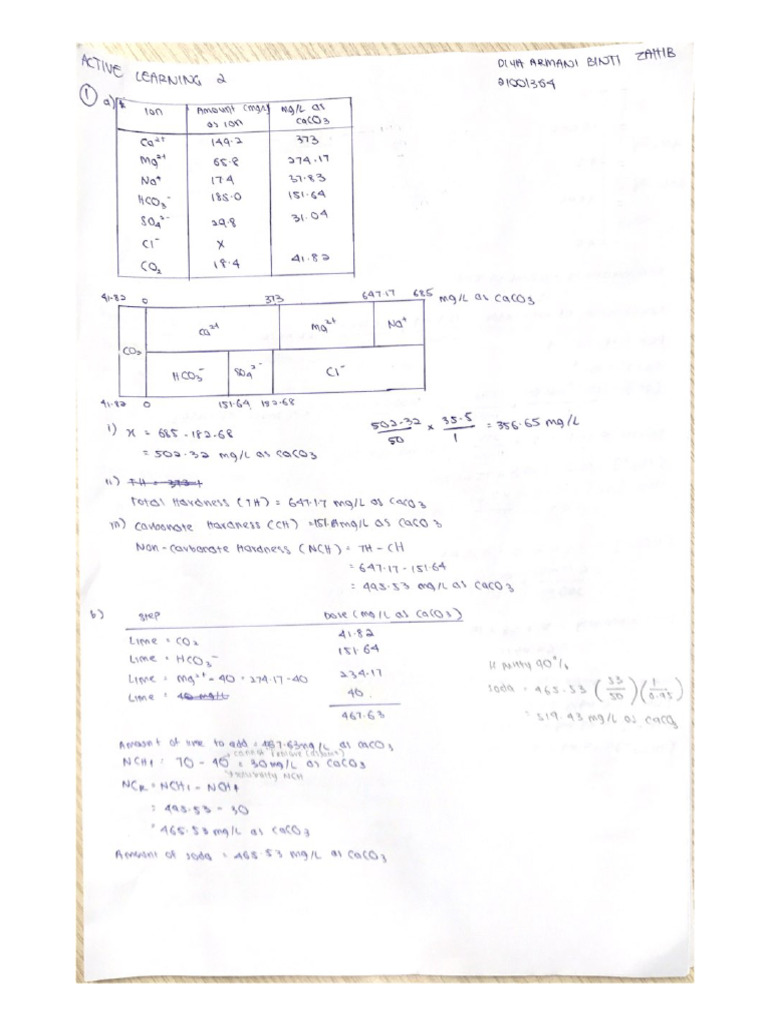 ACTIVE LEARNING 2
DIYA ARMANI BINTI ZAHIB
21001364
1 a)
Ion Amount (mg/L) as ion mg/L as CaCO3
Ca2+ 149.2 373
Mg2+ 65.8 274.17
Na+ 17.4 37.83
HCO3- 185.0 151.64
SO4 2- 29.8 31.04
Cl- x
CO2 18.4 41.82
41.82 0 373 647.17 685 mg/L as CaCO3
CO2 Ca2+ Mg2+ Na+
HCO3- SO4 2- Cl-
41.82 0 151.64 182.68
i) x = 685 - 182.68
= 502.32 mg/L as CaCO3
502.32/50 x 35.5/1 = 356.65 mg/L
ii)
Total Hardness (TH) = 647.17 mg/L as CaCO3
iii) Carbonate Hardness (CH) = mg/L as CaCO3
Non-carbonate Hardness (NCH) = TH - CH
= 647.17 - 151.64
= 495.53 mg/L as CaCO3
b) Step Dose (mg/L as CaCO3)
Lime = CO2 41.82
Lime = HCO3- 151.64
Lime = Mg2+ - 40 = 274.17 - 40 234.17
Lime = 40 mg/L 40
467.63
Amount of lime to add = 467.63 mg/L as CaCO3
NCHf = 70 - 40 = 30 mg/L as CaCO3
NCH
NCR = NCHi - NCHf
= 495.53 - 30
= 465.53 mg/L as CaCO3
Amount of soda = 465.53 mg/L as CaCO3
90%
soda = 465.53 (53/50)(1/0.95)
= 519.43 mg/L as CaCO3